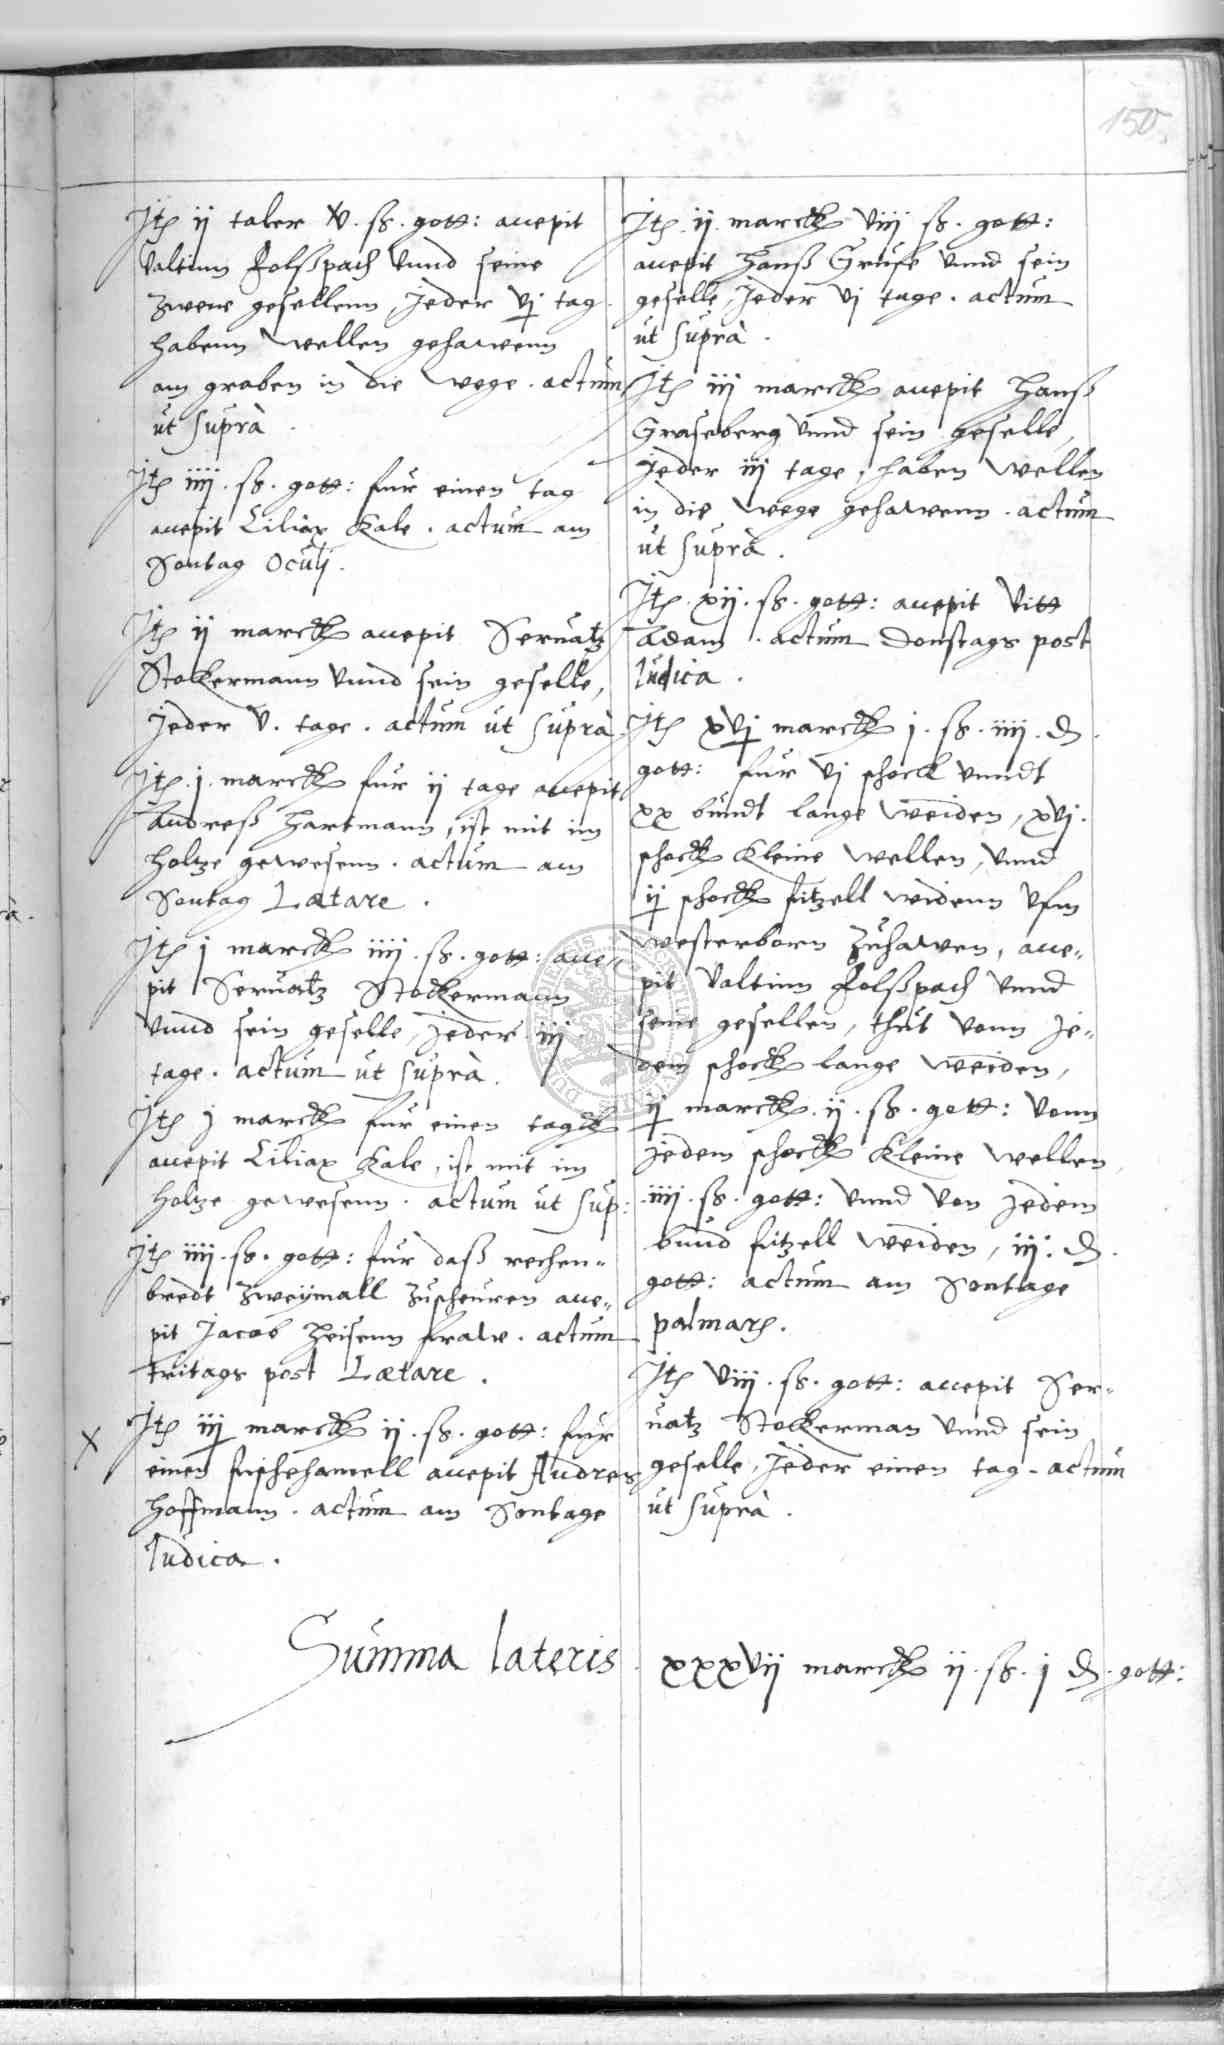 150.
Jtem ij taler v. ss. gott: accepit
Valtinn Folsspach vnnd seine
zwene gesellenn, Jeder vj tag
habenn wellen gehawenn
am graben in die wege. actum
ut suprà.
Jtem iiij. ss. gott: fur einen tag
accepit Ciliax Kale. actum am
Sontag Oculj.
Jtem ij marck accepit Seruatz
Stockermann vnnd sein geselle,
Jeder v. tage. actum ut suprà
Jtem. j. marck fur ij tage accepit
Andress Hartmann, ist mit im
Holtze gewesenn. actum am
Sontag Lætare.
Jtem j marck iiij. ss. gott: acce-
pit Seruatz Stockermann
vnnd sein geselle, Jeder iij
tage. actum ut suprà.
Jtem j marck fur einen tagk
accepit Ciliax Kale, ist mit im
Holtze gewesenn. actum ut sup:
Jtem iiij. ss. gott: fur dass rechen-
bredt zweymall zuscheuren acce-
pit Jacob Heisenn fraw. actum
fritags post Lætare.
x Jtem iij marck ij. ss. gott: fur
einen fischehamell accepit Andres
Hoffmann. actum am Sontage
Iudica.
Jtem. ij. marck viij ss. gott:
accepit Hanss Gruse vnnd sein
geselle, Jeder vj tage. actum
ut suprà.
Jtem iij marck accepit Hanss
Graseberg vnnd sein geselle,
Jeder iij tage, haben wellen
in die wege gehawenn. actum
ut suprà.
Jtem. xij. ss. gott: accepit Vitt
Adam. actum Donstags post
Iudica.
Jtem xvj marck j. ss. iiij. d.
gott: fur vj schock vnndt
xx bundt lange weiden, xvj.
schock kleine wellen, vnnd
ij schock fitzell widenn vfm
westerborn zuhawen, acce-
pit Valtinn Folsspach vnnd
seine gesellen, thut vonn Je-
dem schock lange weiden,
ij marck. ij. ss. gott: vonn
jedem schock kleine wellen
iiij. ss. gott: vnnd von Jedem
bund fitzell weiden, iij. d.
gott: actum am Sontage
palmarum.
Jtem viij. ss. gott: accepit Ser-
uatz Stockerman vnnd sein
geselle, Jeder einen tag. actum
ut suprà.
Summa lateris xxxvij marck ij. ss. j d. gott: